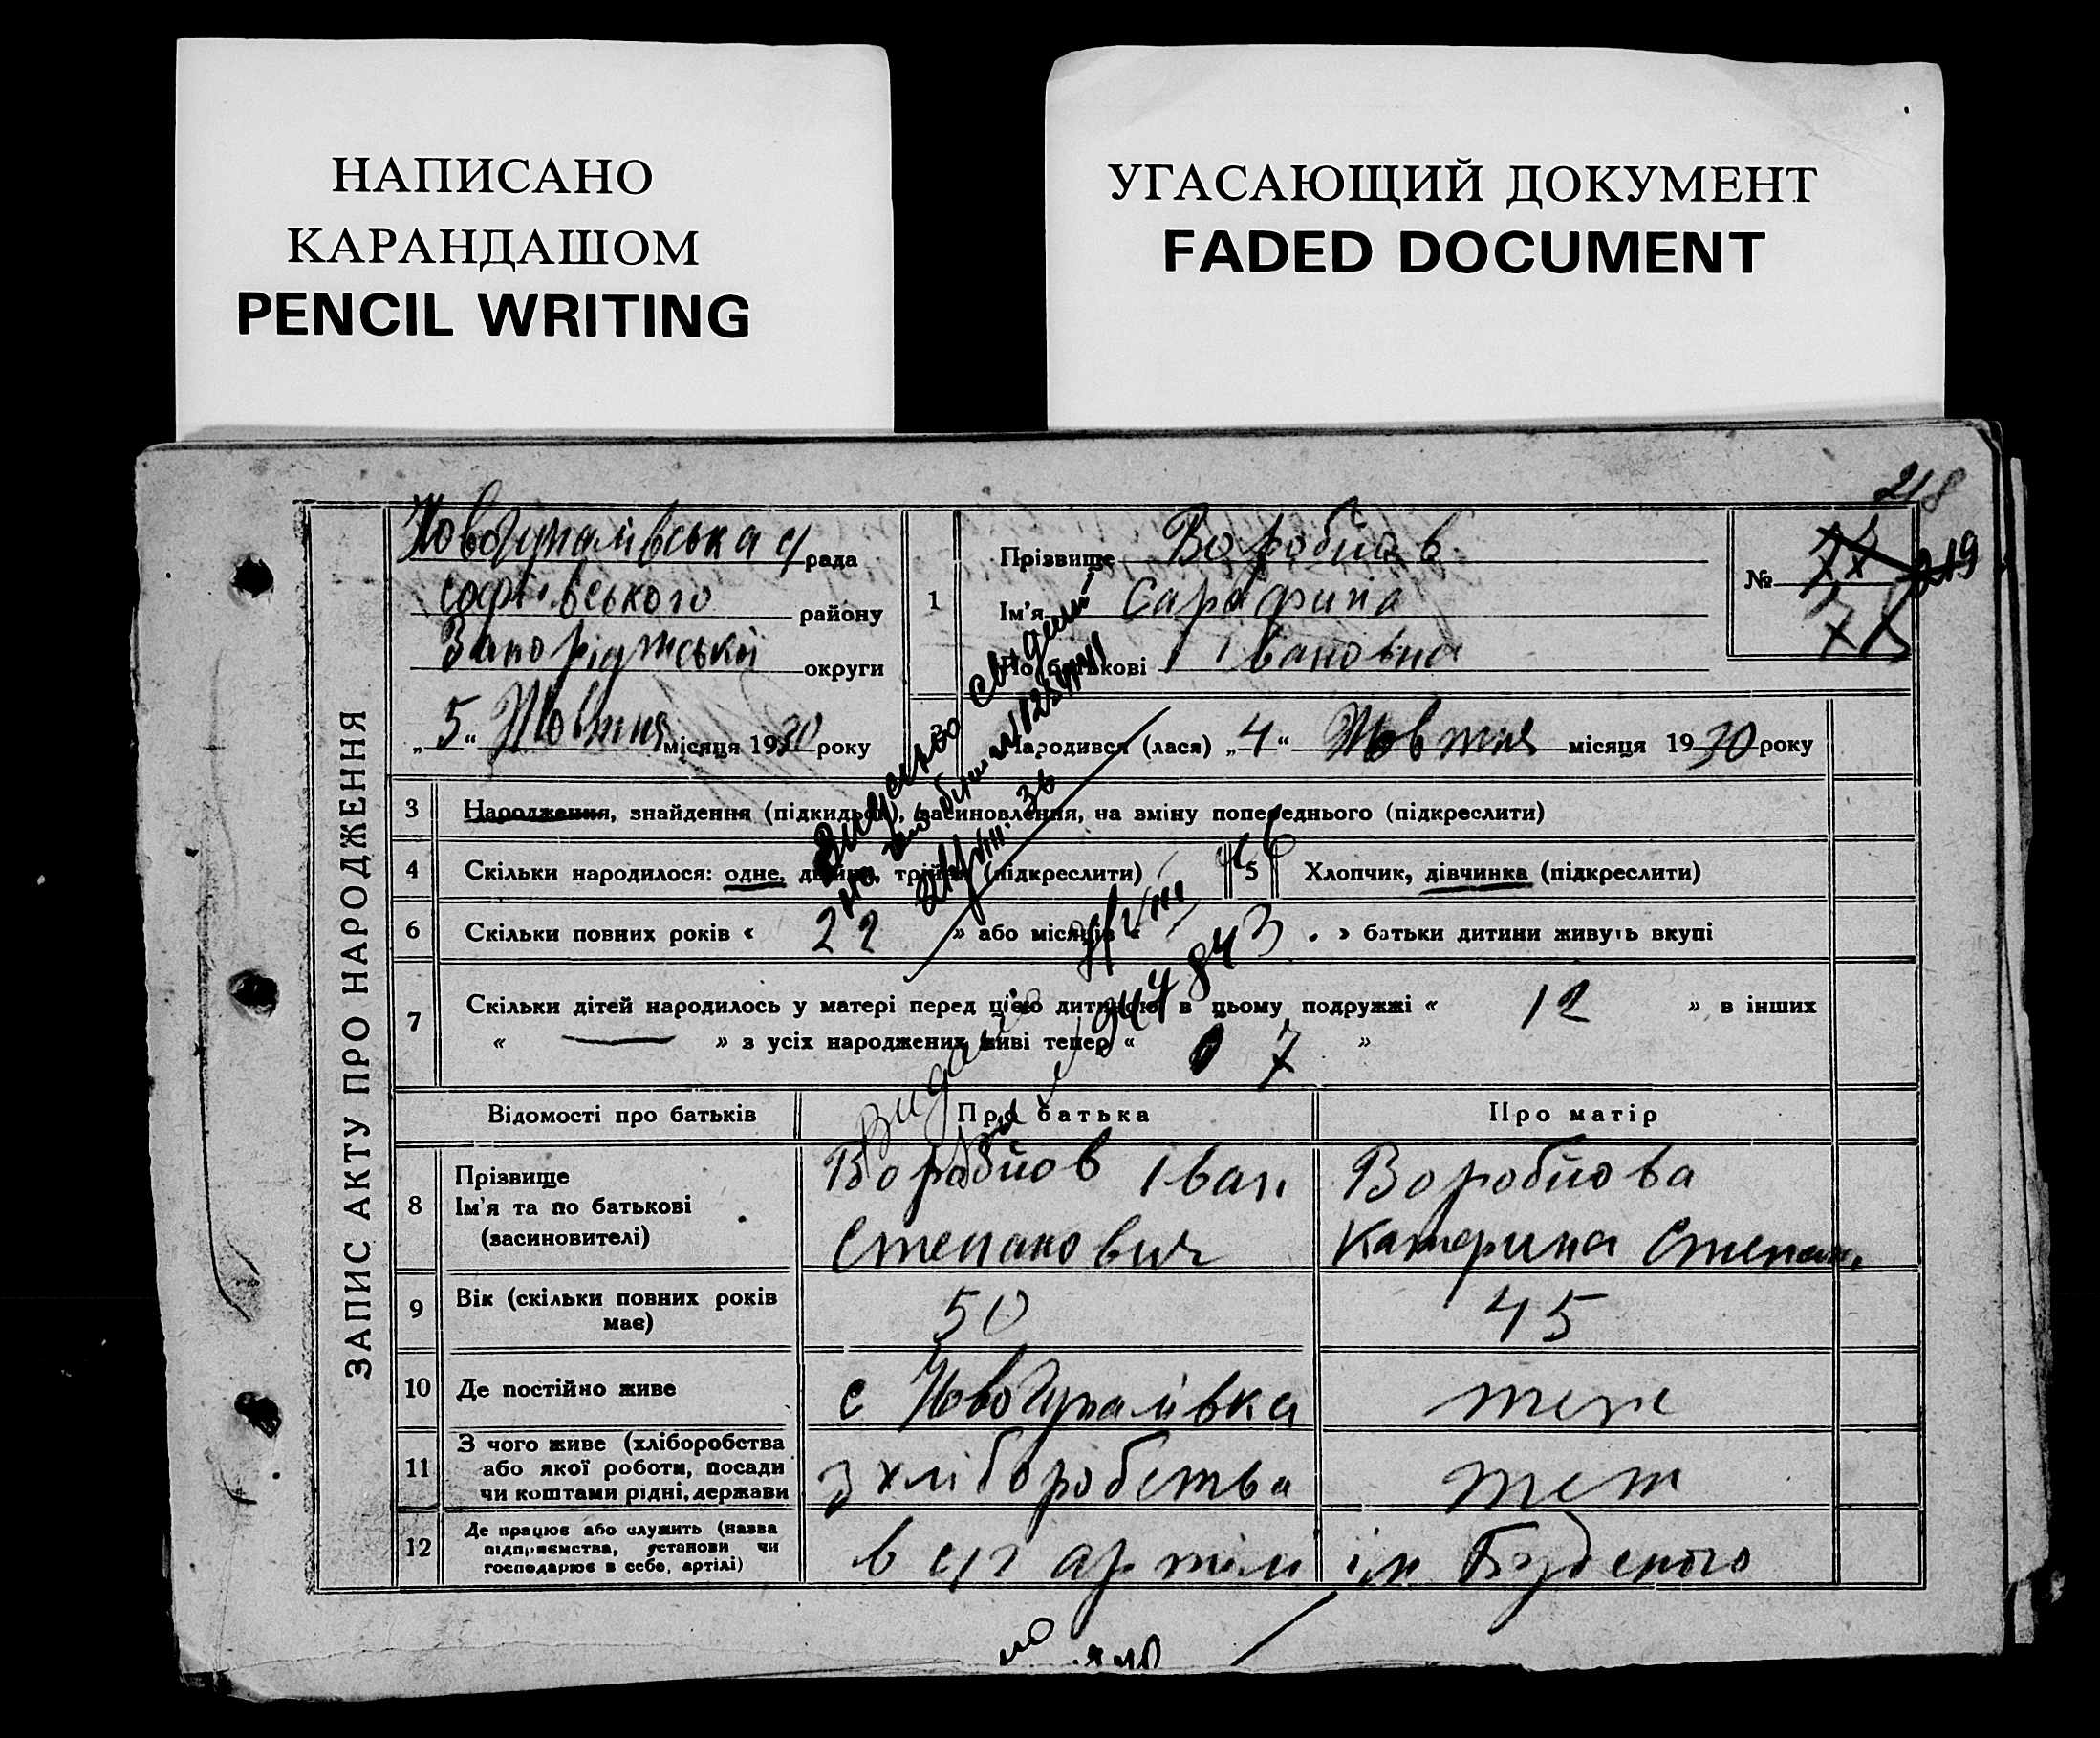 НАПИСАНО
КАРАНДАШОМ
PENCIL WRITING
УГАСАЮЩИЙ ДОКУМЕНТ
FADED DOCUMENT
218
219
ЗАПИС АКТУ ПРО НАРОДЖЕННЯ
Новогупалівська с/рада
Софіівського району
Запоріджської округи
„5“ Жовтня місяця 1930 року
1
Прізвище Воробйов
Ім'я Сарафина
По батькові Івановна
№
Народився (лася) „4“ Жовтня місяця 1930 року
3 Народження, знайдення (підкидька), засиновлення, на зміну попереднього (підкреслити)
4 Скільки народилося: одне, двійня, трійня (підкреслити) 5 Хлопчик, дівчинка (підкреслити)
6 Скільки повних років « 22 » або місяців « » батьки дитини живуть вкупі
7 Скільки дітей народилось у матері перед цією дитиною в цьому подружжі « 12 » в інших
« — » з усіх народжених живі тепер « 7 »
Відомості про батьків Про батька Про матір
8 Прізвище
Ім'я та по батькові
(засиновителі)
Воробйов Іван
Степанович
Воробйова
Катерина Степан.
9 Вік (скільки повних років
має)
50 45
10 Де постійно живе с Новогупалівка теж
11 З чого живе (хліборобства
або якої роботи, посади
чи коштами рідні, держави
з хліборобства теж
12 Де працює або служить (назва
підприємства, установи чи
господарює в себе, артілі)
в с/г артіли ім Буденого